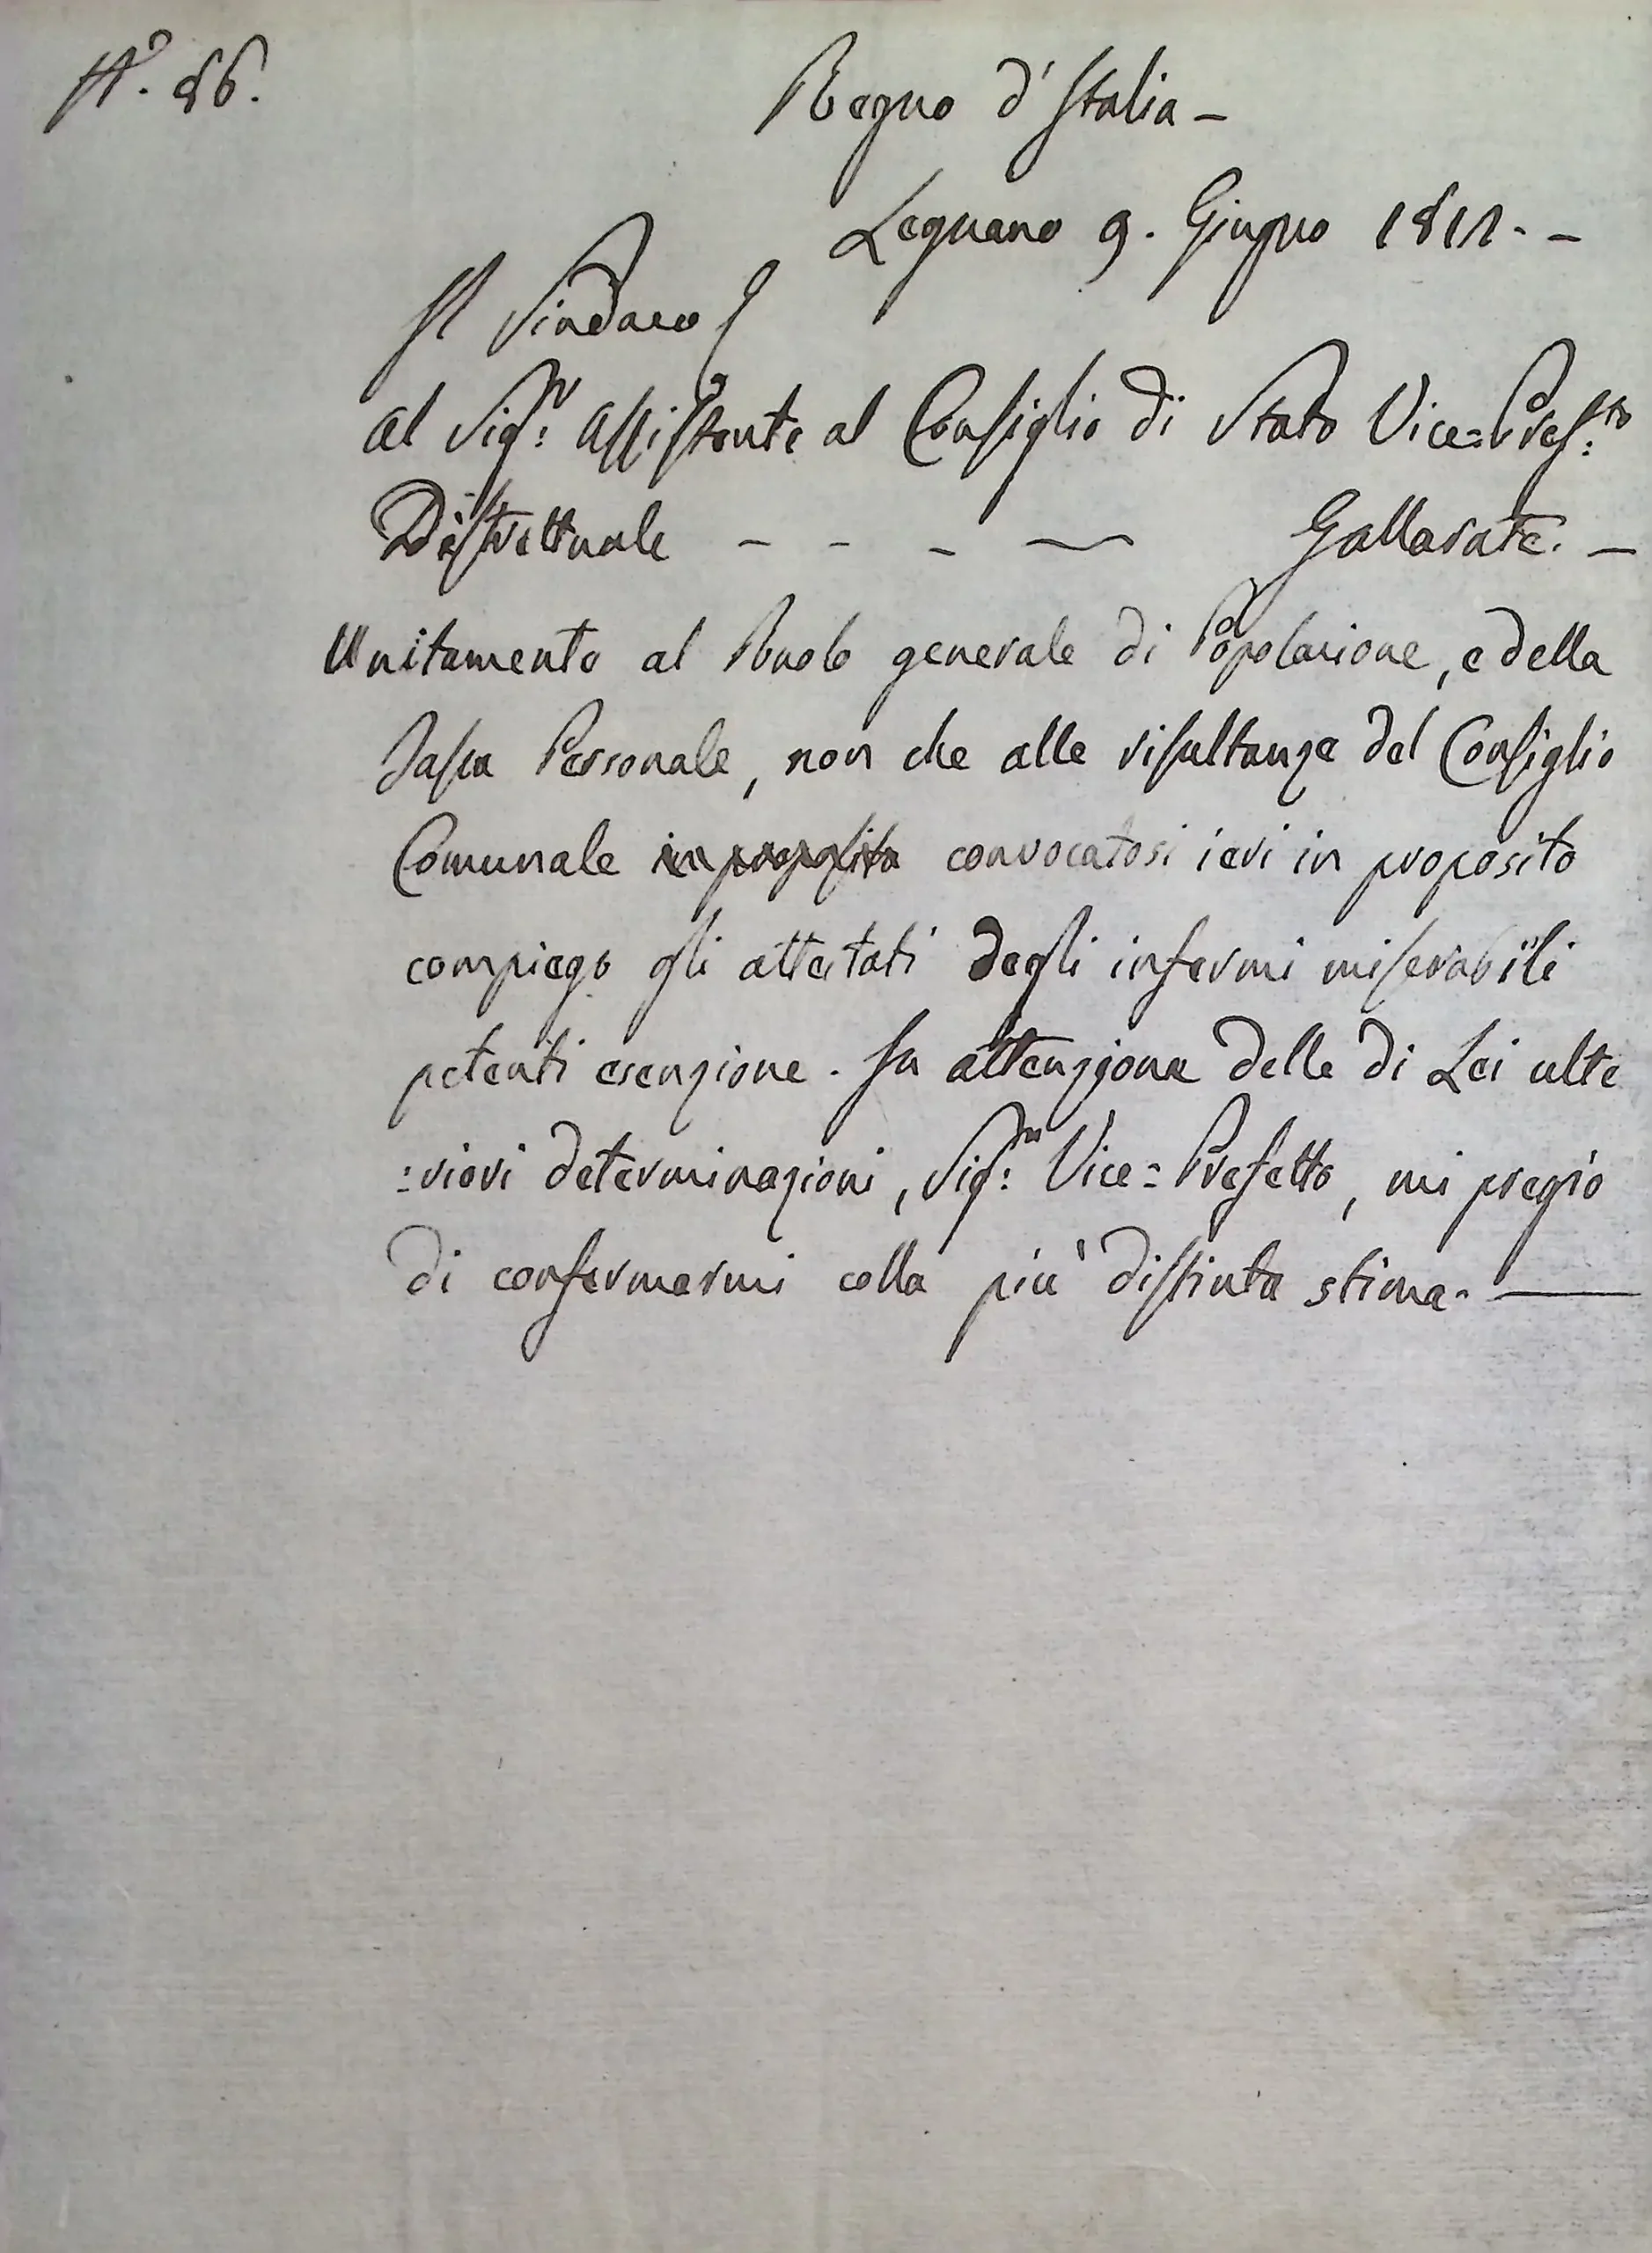 N.° 86.
Regno d'Italia -
Legnano 9. Giugno 1811. -
Il Sindaco
Al Sig.r Assistente al Consiglio di Stato Vice=Pref.to
Distrettuale - - - ~ Gallarate. -
Unitamente al Ruolo generale di Popolazione, e della
Tassa Personale, non che alle risultanze del Consiglio
Comunale in proposito convocatosi ieri in proposito
compiego gli attestati degli infermi miserabili
petenti esenzione. In attenzione delle di Lei ulte
:riori determinazioni, Sig.r Vice=Prefetto, mi pregio
di confermarmi colla più distinta stima. -